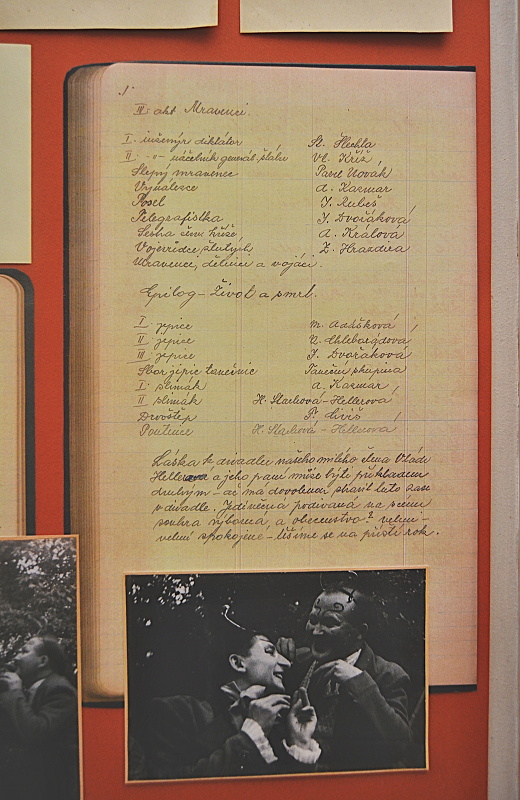 III. akt Mravenci.
I. inženýr diktátor St. Šlechta
II. -"- náčelník generál. štábu Vl. Kříž
Slepý mravenec Pavel Novák
Vynálezce A. Kazmar
Posel J. Rubeš
Telegrafistka J. Dvořáková
Sestra červ. kříže A. Králová
Vojevůdce žlutých Z. Hrazdira
Mravenci, dělníci a vojáci.
Epilog – Život a smrt.
I. jepice M. Adášková
II. jepice V. Chlebarádová
III. jepice J. Dvořáková
Sbor jepic tanečnic Taneční skupina
I. slimák A. Kazmar
II. slimák H. Stachová-Hellerová
Dvoštěp P. Civiš
Poutnice H. Stachová-Hellerová
Láska k divadlu našeho milého člena Vládi
Hellera a jeho paní může býti příkladem
druhým – ač má dovolenou strávil tuto zase
v divadle. Jedinečná podívaná na scénu
souhra výborná, a obecenstvo? velmi –
velmi spokojené – těšíme se na příští rok.